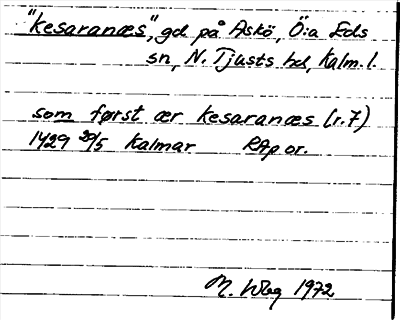 "kesaranæs", gd på Askö, Ö:a Eds
sn, N. Tjusts hd, Kalm. l.
som først ær kesaranæs (r. 7)
1429 20/5 Kalmar RAp or.
M. Wbg 1972